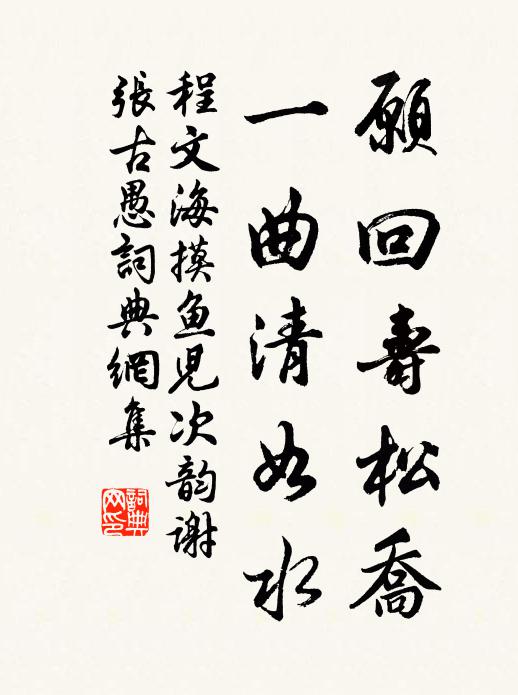 願回壽松喬
一曲清如水
程文海摸鱼児次韵謝
張古愚詞典網集
詞典网印